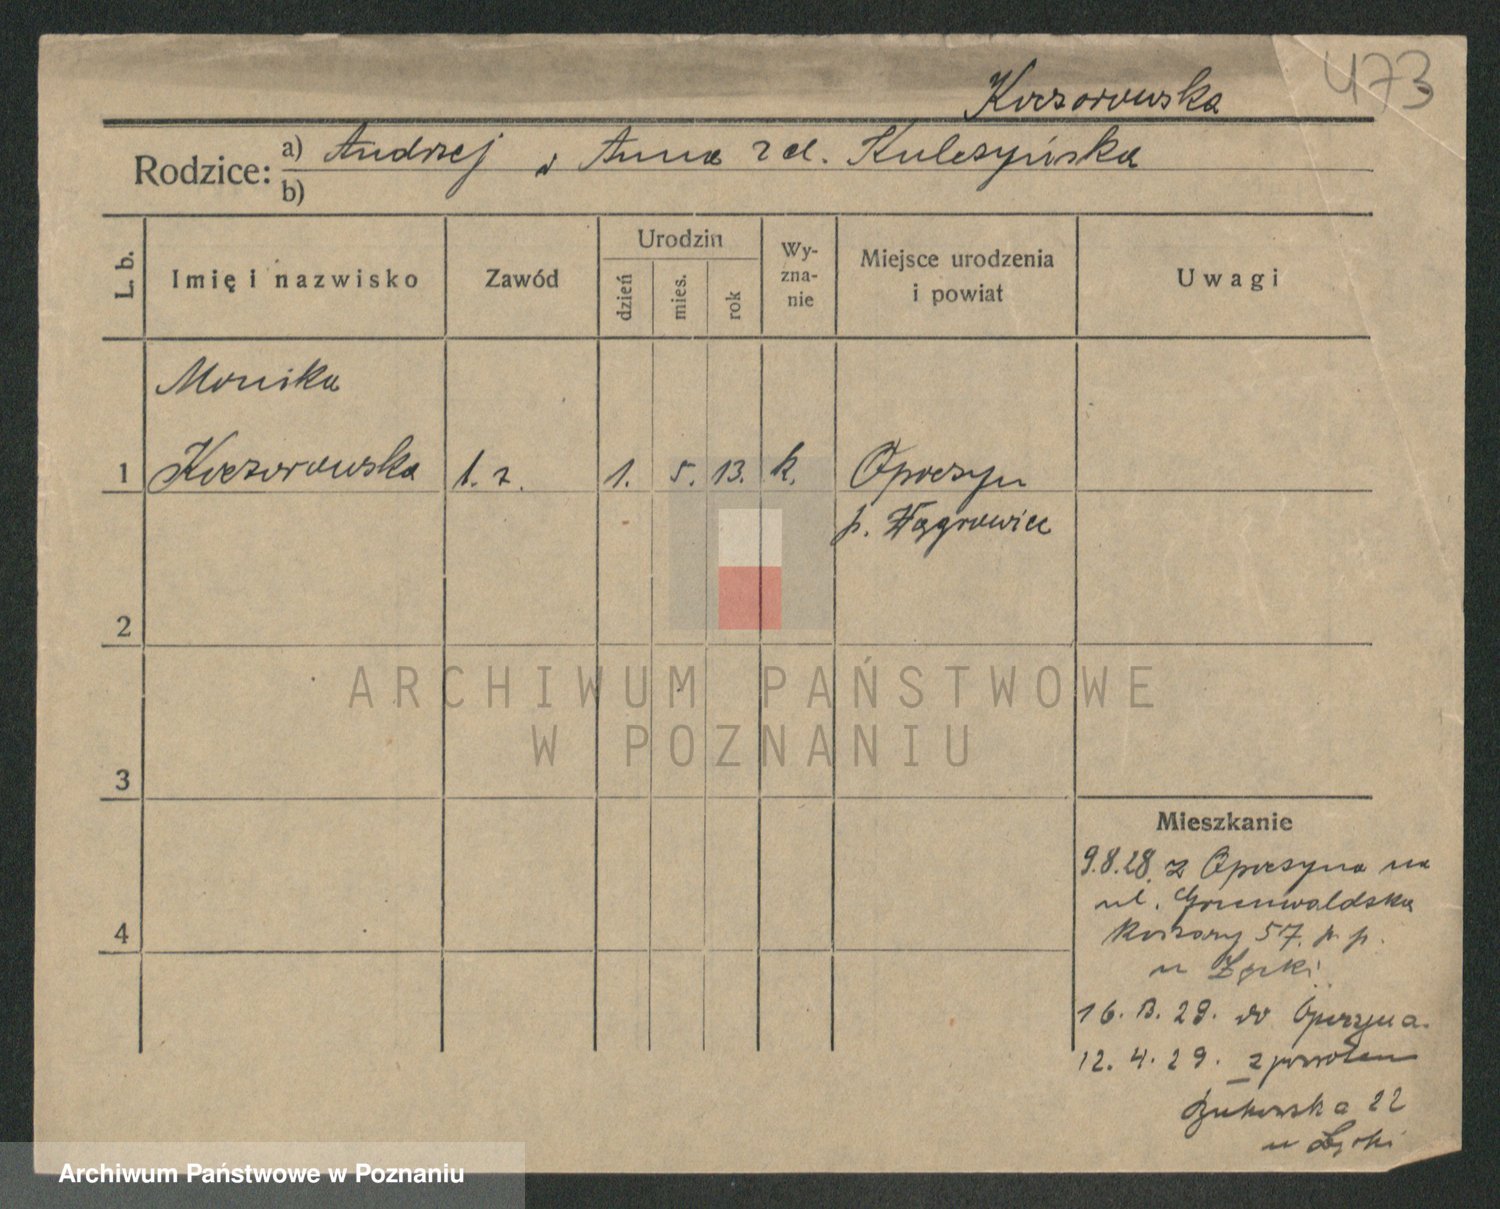 473
Koczorowska
Rodzice: a) Andrzej i Anna z d. Kuleszyńska
b)
L. b.
Imię i nazwisko
Zawód
Urodzin
dzień
mies.
rok
Wy-
zna-
nie
Miejsce urodzenia
i powiat
Uwagi
Monika
1 Koczorowska b. z. 1. 5. 13. k. Opoczyn
p. Wągrowiec
2
3
4
ARCHIWUM PAŃSTWOWE
W POZNANIU
Mieszkanie
9.8.28. z Opoczyna na
ul. Grunwaldska
Koszary 57. p. p.
u
16. 3. 29. do Opoczyna.
12. 4. 29. z powrotem
Bukowska 22
u
Archiwum Państwowe w Poznaniu